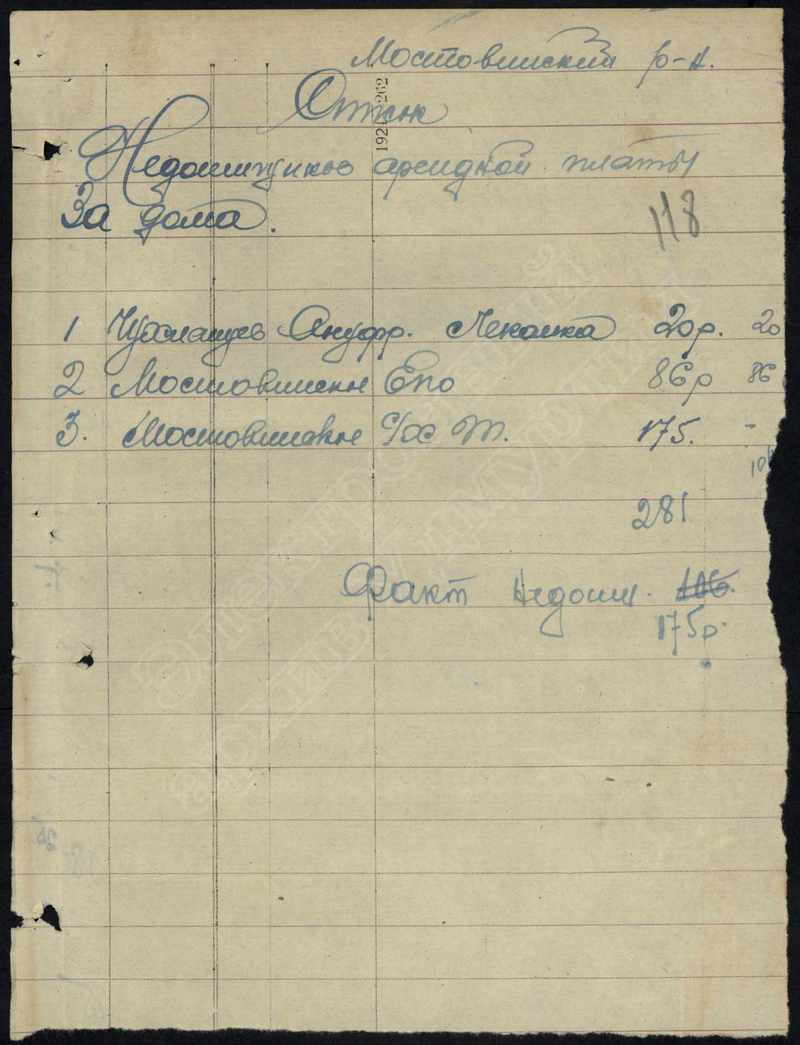 Мостовинский р-н.
Список
Недоимщиков арендной платы
за дома.
118
1 Ануфр. 20р. 20
2 Мостовинское Епо 86р 86
3. Мостовинское С/хо Т. 175. -
106
281
Факт недоим. 106.
175р.